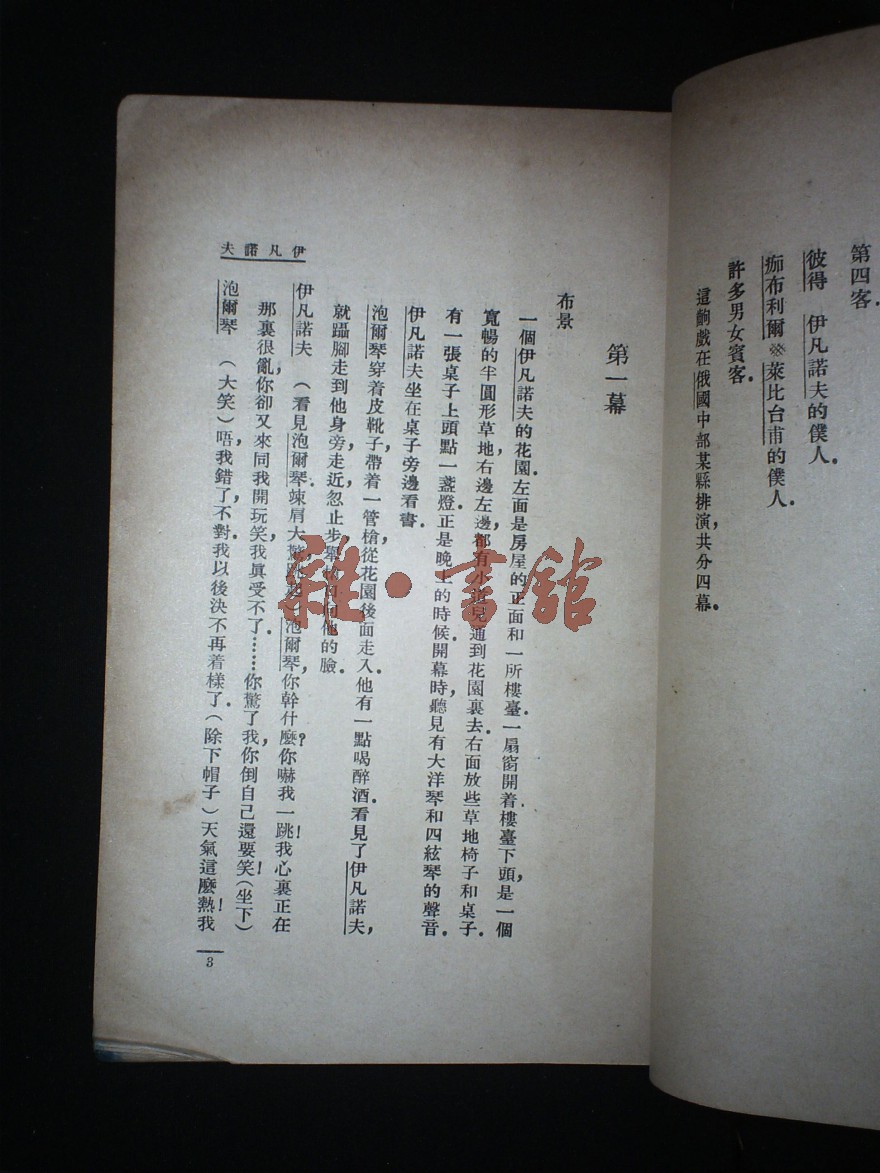 第四客．
彼得　伊凡諾夫的僕人．
痂布利爾※萊比台甫的僕人．
許多男女賓客．
這齣戲在俄國中部某縣排演，共分四幕．
第一幕
布景
一個伊凡諾夫的花園．左面是房屋的正面和一所樓臺．一扇窗開着．樓臺下頭，是一個
寬暢的半圓形草地．右邊左邊，都有小道兒通到花園裏去．右面放些草地椅子和桌子．
有一張桌子上頭點一盞燈．正是晚上的時候．開幕時，聽見有大洋琴和四絃琴的聲音．
伊凡諾夫坐在桌子旁邊看書．
泡爾琴穿着皮靴子，帶着一管槍，從花園後面走入．他有一點喝醉酒．看見了伊凡諾夫，
就躡腳走到他身旁．走近，忽止步，舉他的臉．
伊凡諾夫　（看見泡爾琴，竦肩大驚）泡爾琴，你幹什麼？你嚇我一跳！我心裏正在
那裏很亂，你卻又來同我開玩笑，我眞受不了．……你驚了我，你倒自己還要笑！（坐下）
泡爾琴　（大笑）唔，我錯了，不對．我以後決不再着樣了．（除下帽子）天氣這麼熱！我
伊凡諾夫
3
雜·書館